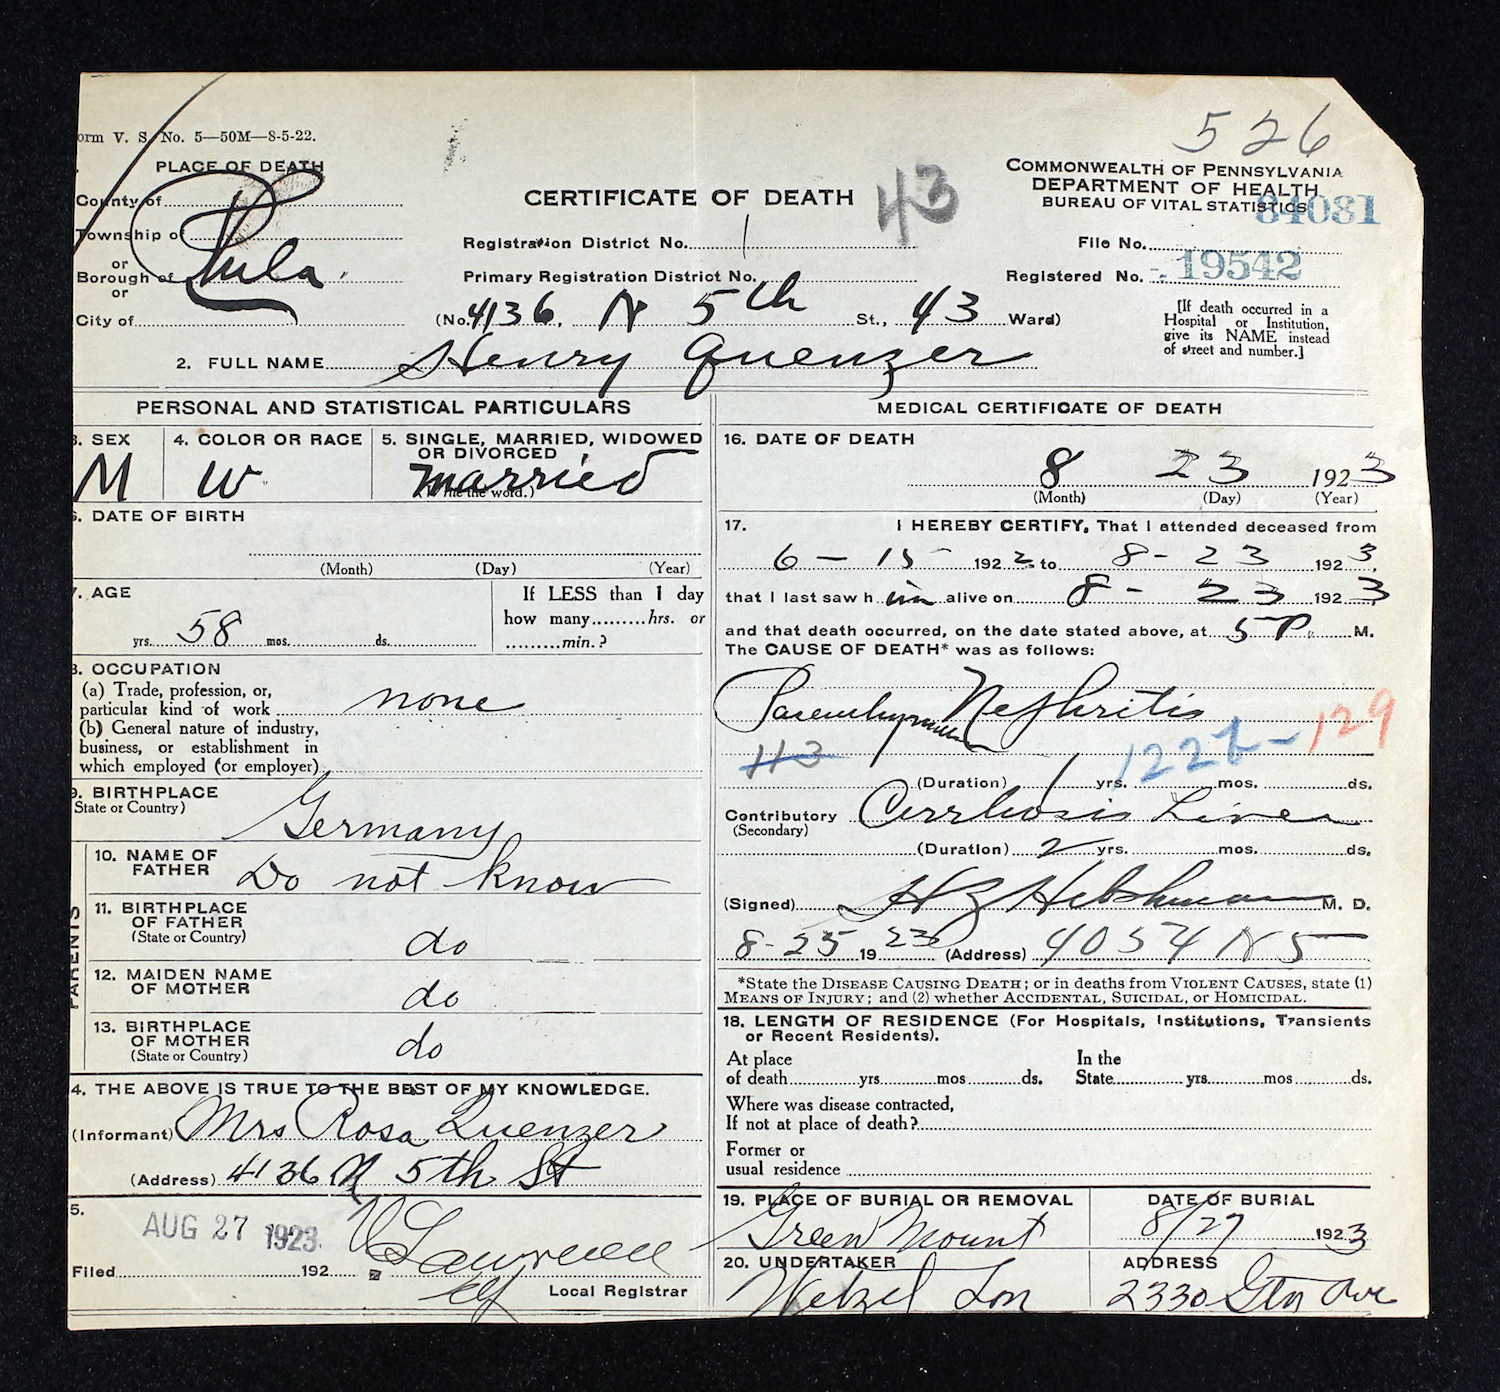 orm V. S. No. 5—50M—8-5-22.
526
PLACE OF DEATH
COMMONWEALTH OF PENNSYLVANIA
DEPARTMENT OF HEALTH
BUREAU OF VITAL STATISTICS
CERTIFICATE OF DEATH
43
84081
County of
Township of
or
Borough of
or
City of
Phila.
Registration District No. 1
File No.
Primary Registration District No.
Registered No. 19542
(No. 4136, N 5th St., 43 Ward)
[If death occurred in a
Hospital or Institution,
give its NAME instead
of street and number.]
2. FULL NAME Henry Quenzer
PERSONAL AND STATISTICAL PARTICULARS
3. SEX
M
4. COLOR OR RACE
W
5. SINGLE, MARRIED, WIDOWED
OR DIVORCED
married
the word.)
6. DATE OF BIRTH
(Month) (Day) (Year)
7. AGE
58
yrs. mos. ds.
If LESS than 1 day
how many hrs. or
min.?
8. OCCUPATION
(a) Trade, profession, or,
particular kind of work none
(b) General nature of industry,
business, or establishment in
which employed (or employer)
9. BIRTHPLACE
State or Country) Germany
PARENTS
10. NAME OF
FATHER Do not know
11. BIRTHPLACE
OF FATHER
(State or Country) do
12. MAIDEN NAME
OF MOTHER do
13. BIRTHPLACE
OF MOTHER
(State or Country) do
4. THE ABOVE IS TRUE TO THE BEST OF MY KNOWLEDGE.
(Informant) Mrs Rosa Quenzer
(Address) 4136 N 5th St
5.
AUG 27 1923
Filed 192
Lawrence
Local Registrar
MEDICAL CERTIFICATE OF DEATH
16. DATE OF DEATH
8 23 1923
(Month) (Day) (Year)
17. I HEREBY CERTIFY, That I attended deceased from
6-15- 1922 to 8-23 1923,
that I last saw him alive on 8-23 1923,
and that death occurred, on the date stated above, at 5 P. M.
The CAUSE OF DEATH* was as follows:
Nephritis
113 122 129
(Duration) 1 yrs. mos. ds.
Contributory Cirrhosis Liver
(Secondary)
(Duration) 2 yrs. mos. ds.
(Signed) M. D.
8-25 1923 (Address) 4054 N 5
*State the DISEASE CAUSING DEATH; or in deaths from VIOLENT CAUSES, state (1)
MEANS OF INJURY; and (2) whether ACCIDENTAL, SUICIDAL, or HOMICIDAL.
18. LENGTH OF RESIDENCE (For Hospitals, Institutions, Transients
or Recent Residents).
At place
of death yrs mos ds.
In the
State yrs. mos ds.
Where was disease contracted,
If not at place of death?
Former or
usual residence
19. PLACE OF BURIAL OR REMOVAL
Green Mount
DATE OF BURIAL
8/27 1923
20. UNDERTAKER
Wetzel Son
ADDRESS
2330 Gtn Ave